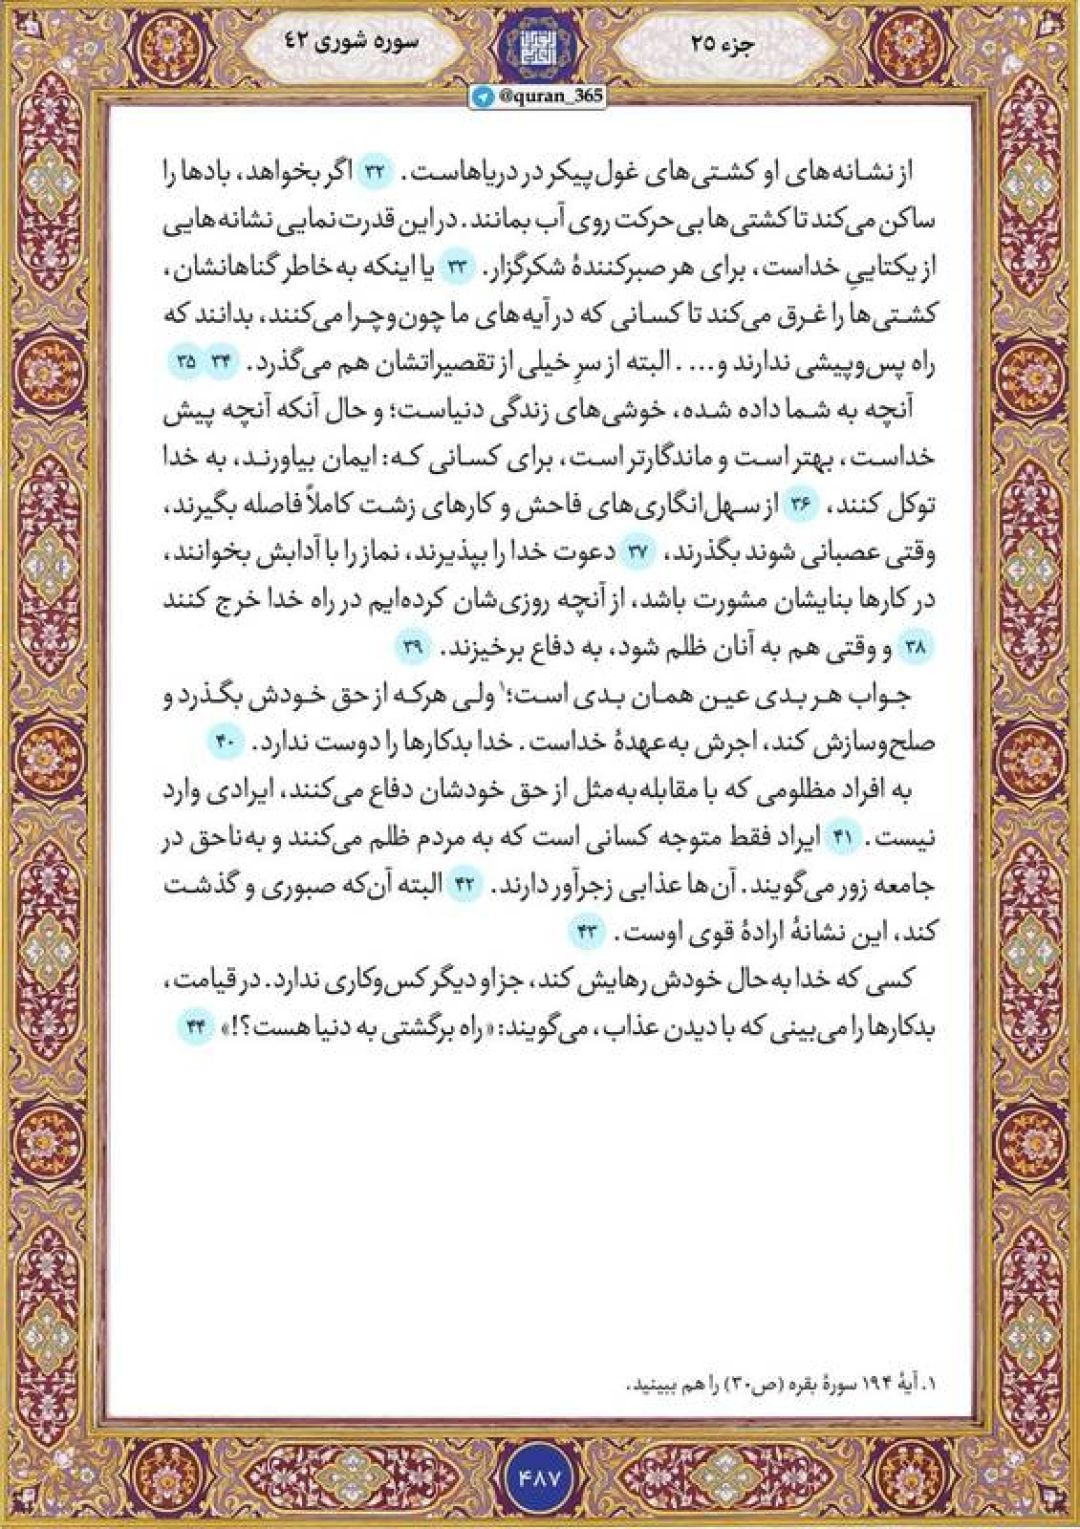 جزء ۲۵
سوره شوری ۴۲
@quran_365
از نشانه‌های او کشتی‌های غول‌پیکر در دریاهاست. ۳۲ اگر بخواهد، بادها را
ساکن می‌کند تا کشتی‌ها بی‌حرکت روی آب بمانند. در این قدرت‌نمایی نشانه‌هایی
از یکتاییِ خداست، برای هر صبرکنندهٔ شکرگزار. ۳۳ یا اینکه به‌خاطر گناهانشان،
کشتی‌ها را غرق می‌کند تا کسانی که در آیه‌های ما چون‌وچرا می‌کنند، بدانند که
راه پس‌وپیشی ندارند و... . البته از سرِ خیلی از تقصیراتشان هم می‌گذرد. ۳۴ ۳۵
آنچه به شما داده شده، خوشی‌های زندگی دنیاست؛ و حال آنکه آنچه پیش
خداست، بهتر است و ماندگارتر است، برای کسانی که: ایمان بیاورند، به خدا
توکل کنند، ۳۶ از سهل‌انگاری‌های فاحش و کارهای زشت کاملاً فاصله بگیرند،
وقتی عصبانی شوند بگذرند، ۳۷ دعوت خدا را بپذیرند، نماز را با آدابش بخوانند،
در کارها بنایشان مشورت باشد، از آنچه روزی‌شان کرده‌ایم در راه خدا خرج کنند
۳۸ و وقتی هم به آنان ظلم شود، به دفاع برخیزند. ۳۹
جواب هر بدی عین همان بدی است؛۱ ولی هرکه از حق خودش بگذرد و
صلح‌وسازش کند، اجرش به‌عهدهٔ خداست. خدا بدکارها را دوست ندارد. ۴۰
به افراد مظلومی که با مقابله‌به‌مثل از حق خودشان دفاع می‌کنند، ایرادی وارد
نیست. ۴۱ ایراد فقط متوجه کسانی است که به مردم ظلم می‌کنند و به‌ناحق در
جامعه زور می‌گویند. آن‌ها عذابی زجرآور دارند. ۴۲ البته آن‌که صبوری و گذشت
کند، این نشانهٔ ارادهٔ قوی اوست. ۴۳
کسی که خدا به‌حال خودش رهایش کند، جز او دیگر کس‌وکاری ندارد. در قیامت،
بدکارها را می‌بینی که با دیدن عذاب، می‌گویند: «راه برگشتی به دنیا هست؟!» ۴۴
۱. آیهٔ ۱۹۴ سورهٔ بقره (ص۳۰) را هم ببینید.
۴۸۷